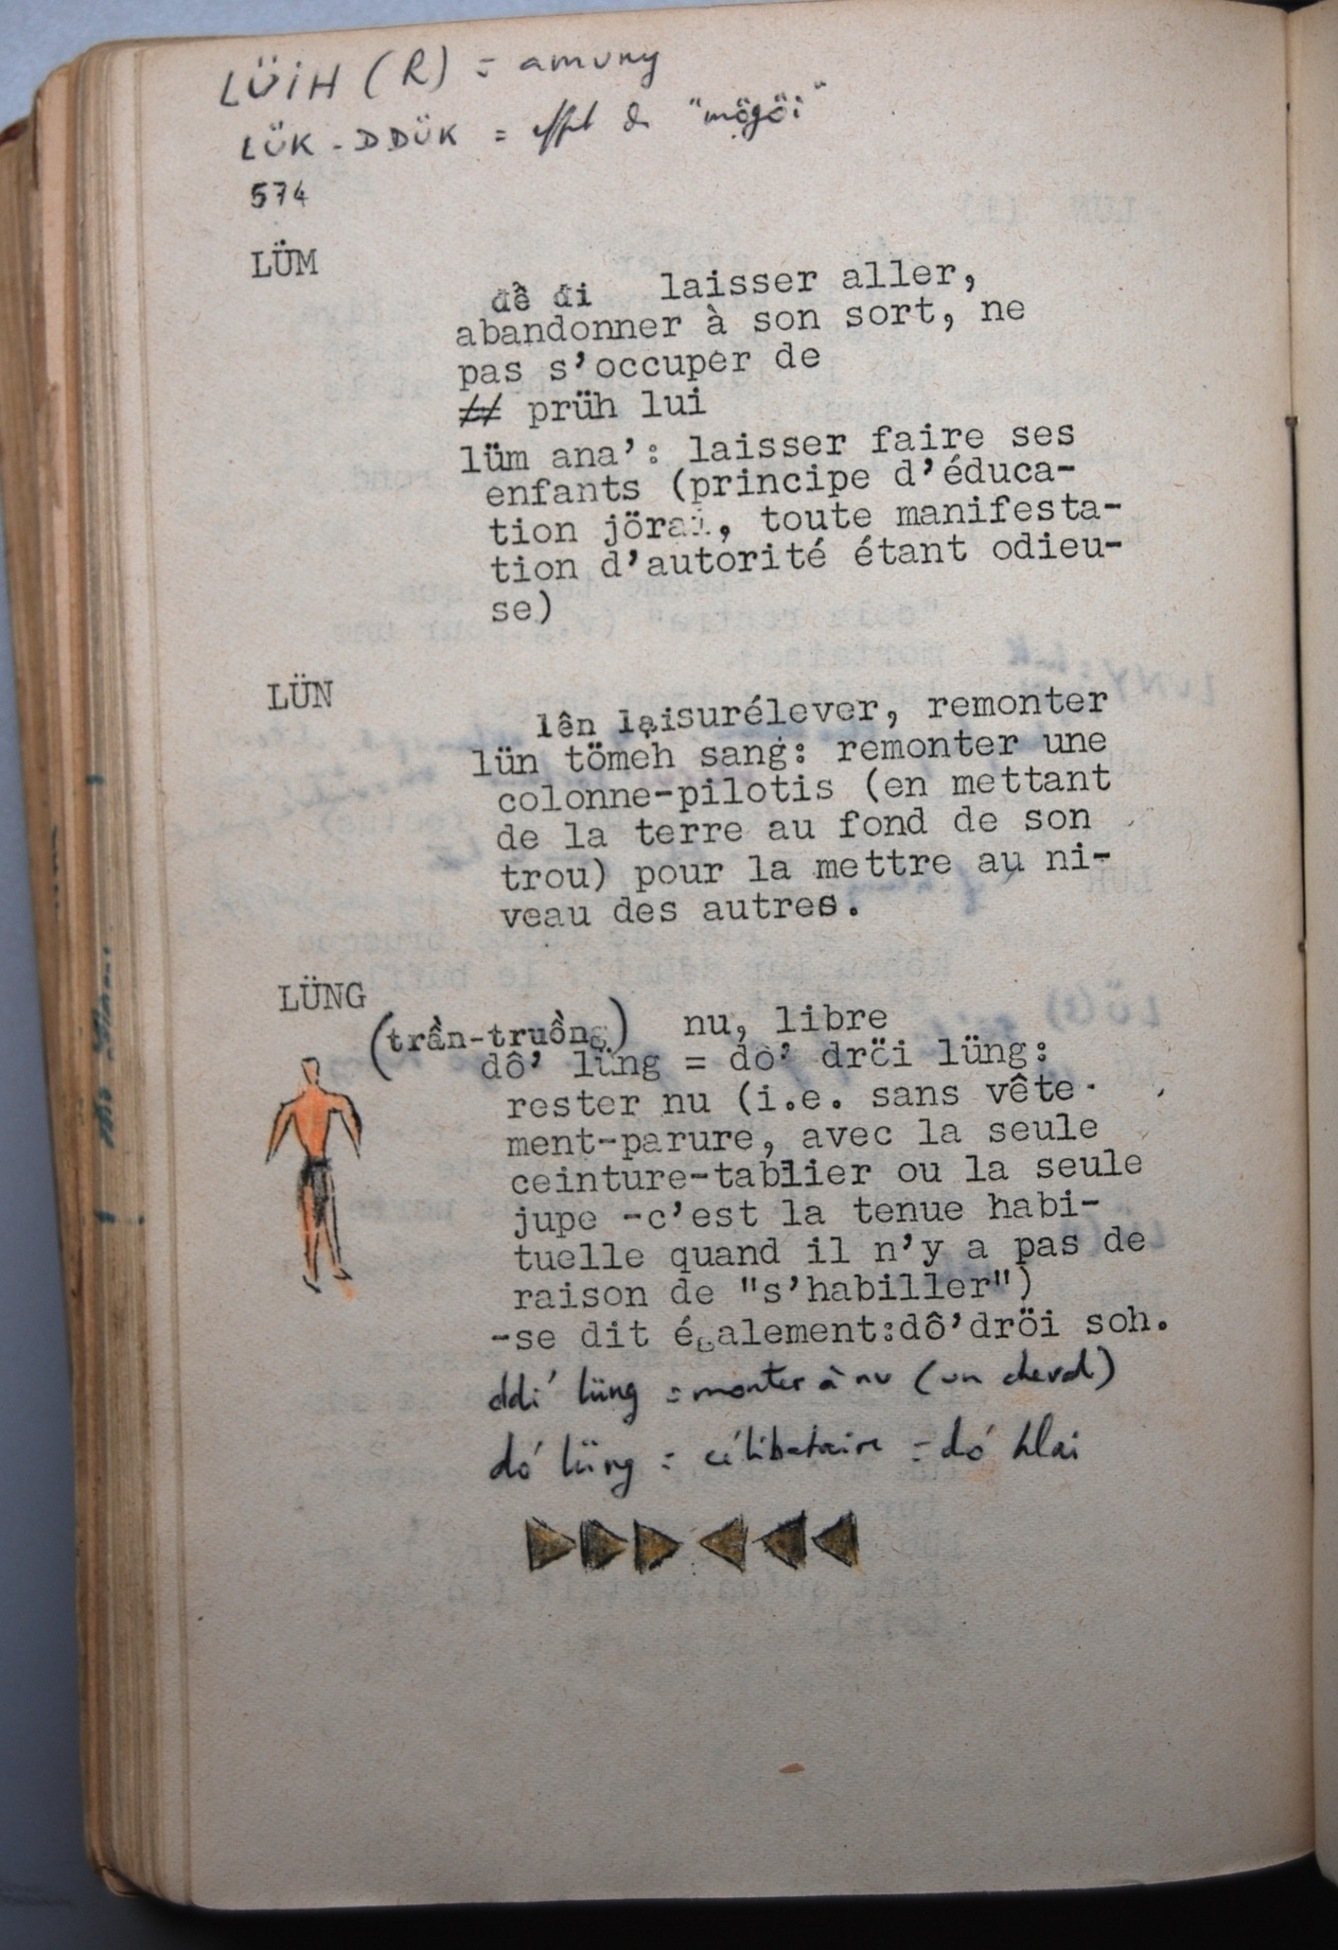 LÜIH (R) = amung
LÜK - DDÜK = effet de "mögöi"
574
LÜM
để đi laisser aller,
abandonner à son sort, ne
pas s'occuper de
≠≠ prüh lui
lüm ana': laisser faire ses
enfants (principe d'éduca-
tion jörai, toute manifesta-
tion d'autorité étant odieu-
se)
LÜN
lên lại surélever, remonter
lün tömeh sang: remonter une
colonne-pilotis (en mettant
de la terre au fond de son
trou) pour la mettre au ni-
veau des autres.
LÜNG
(trần-truồng) nu, libre
dô' lüng = dô' dröi lüng:
rester nu (i.e. sans vête-
ment-parure, avec la seule
ceinture-tablier ou la seule
jupe -c'est la tenue habi-
tuelle quand il n'y a pas de
raison de "s'habiller")
-se dit également:dô'dröi soh.
ddi' lüng = monter à nu (un cheval)
dó' lüng = célibataire = dó' hlai